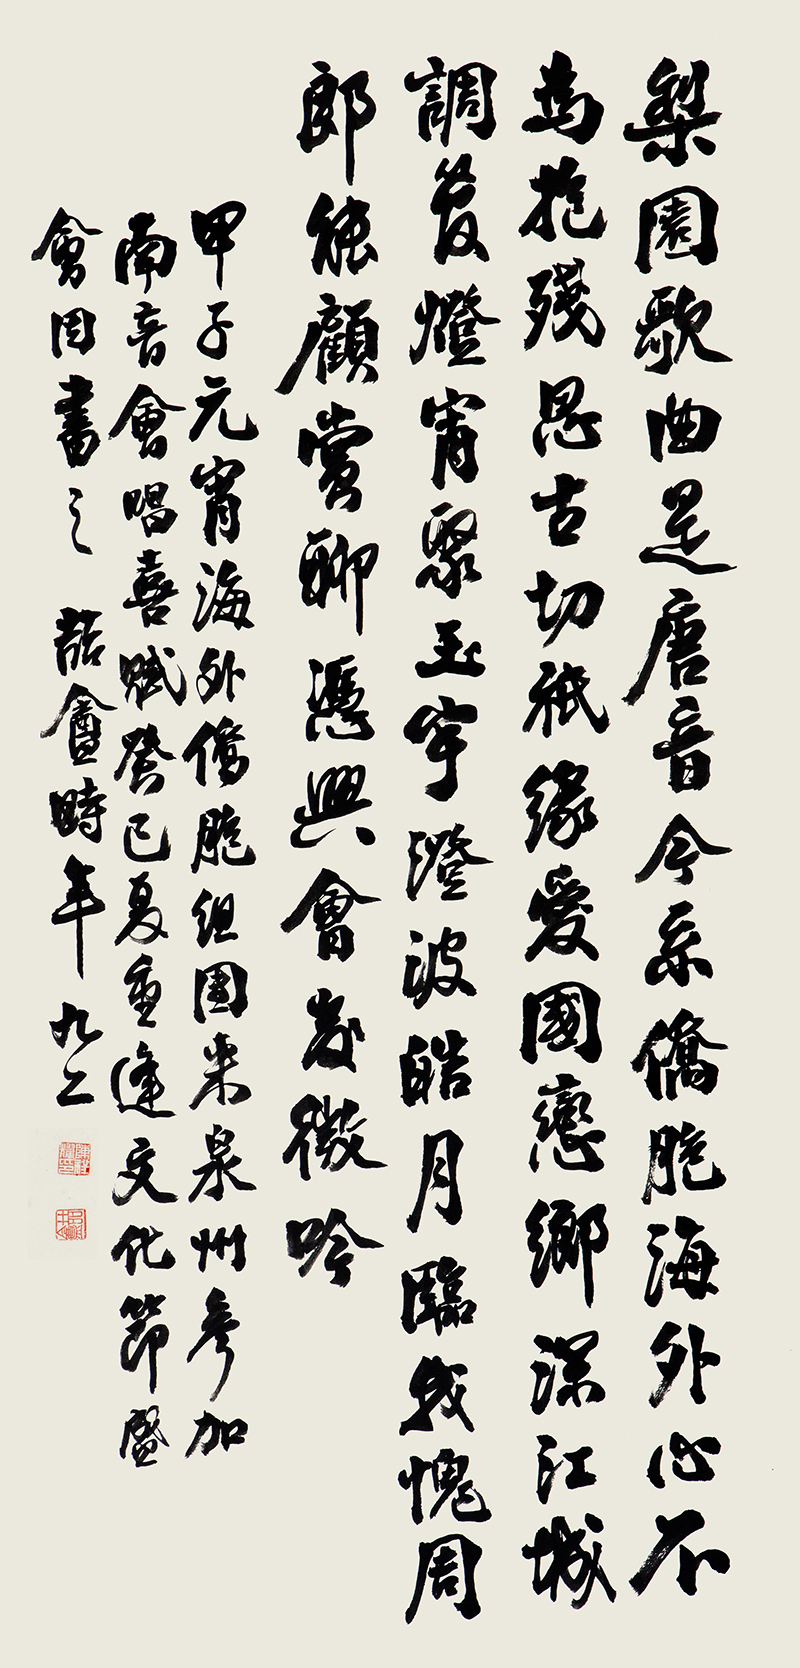 梨園歌曲是唐音今系僑胞海外心不
為抱殘思古切祇緣愛國戀鄉深江城
調發燈宵聚玉宇澄波皓月臨我愧周
郎能顧賞聊憑興會發微吟
甲子元宵海外僑胞組團來泉州參加
南音會唱喜賦癸巳夏重逢文化節盛
會因書之 喆盦時年九二